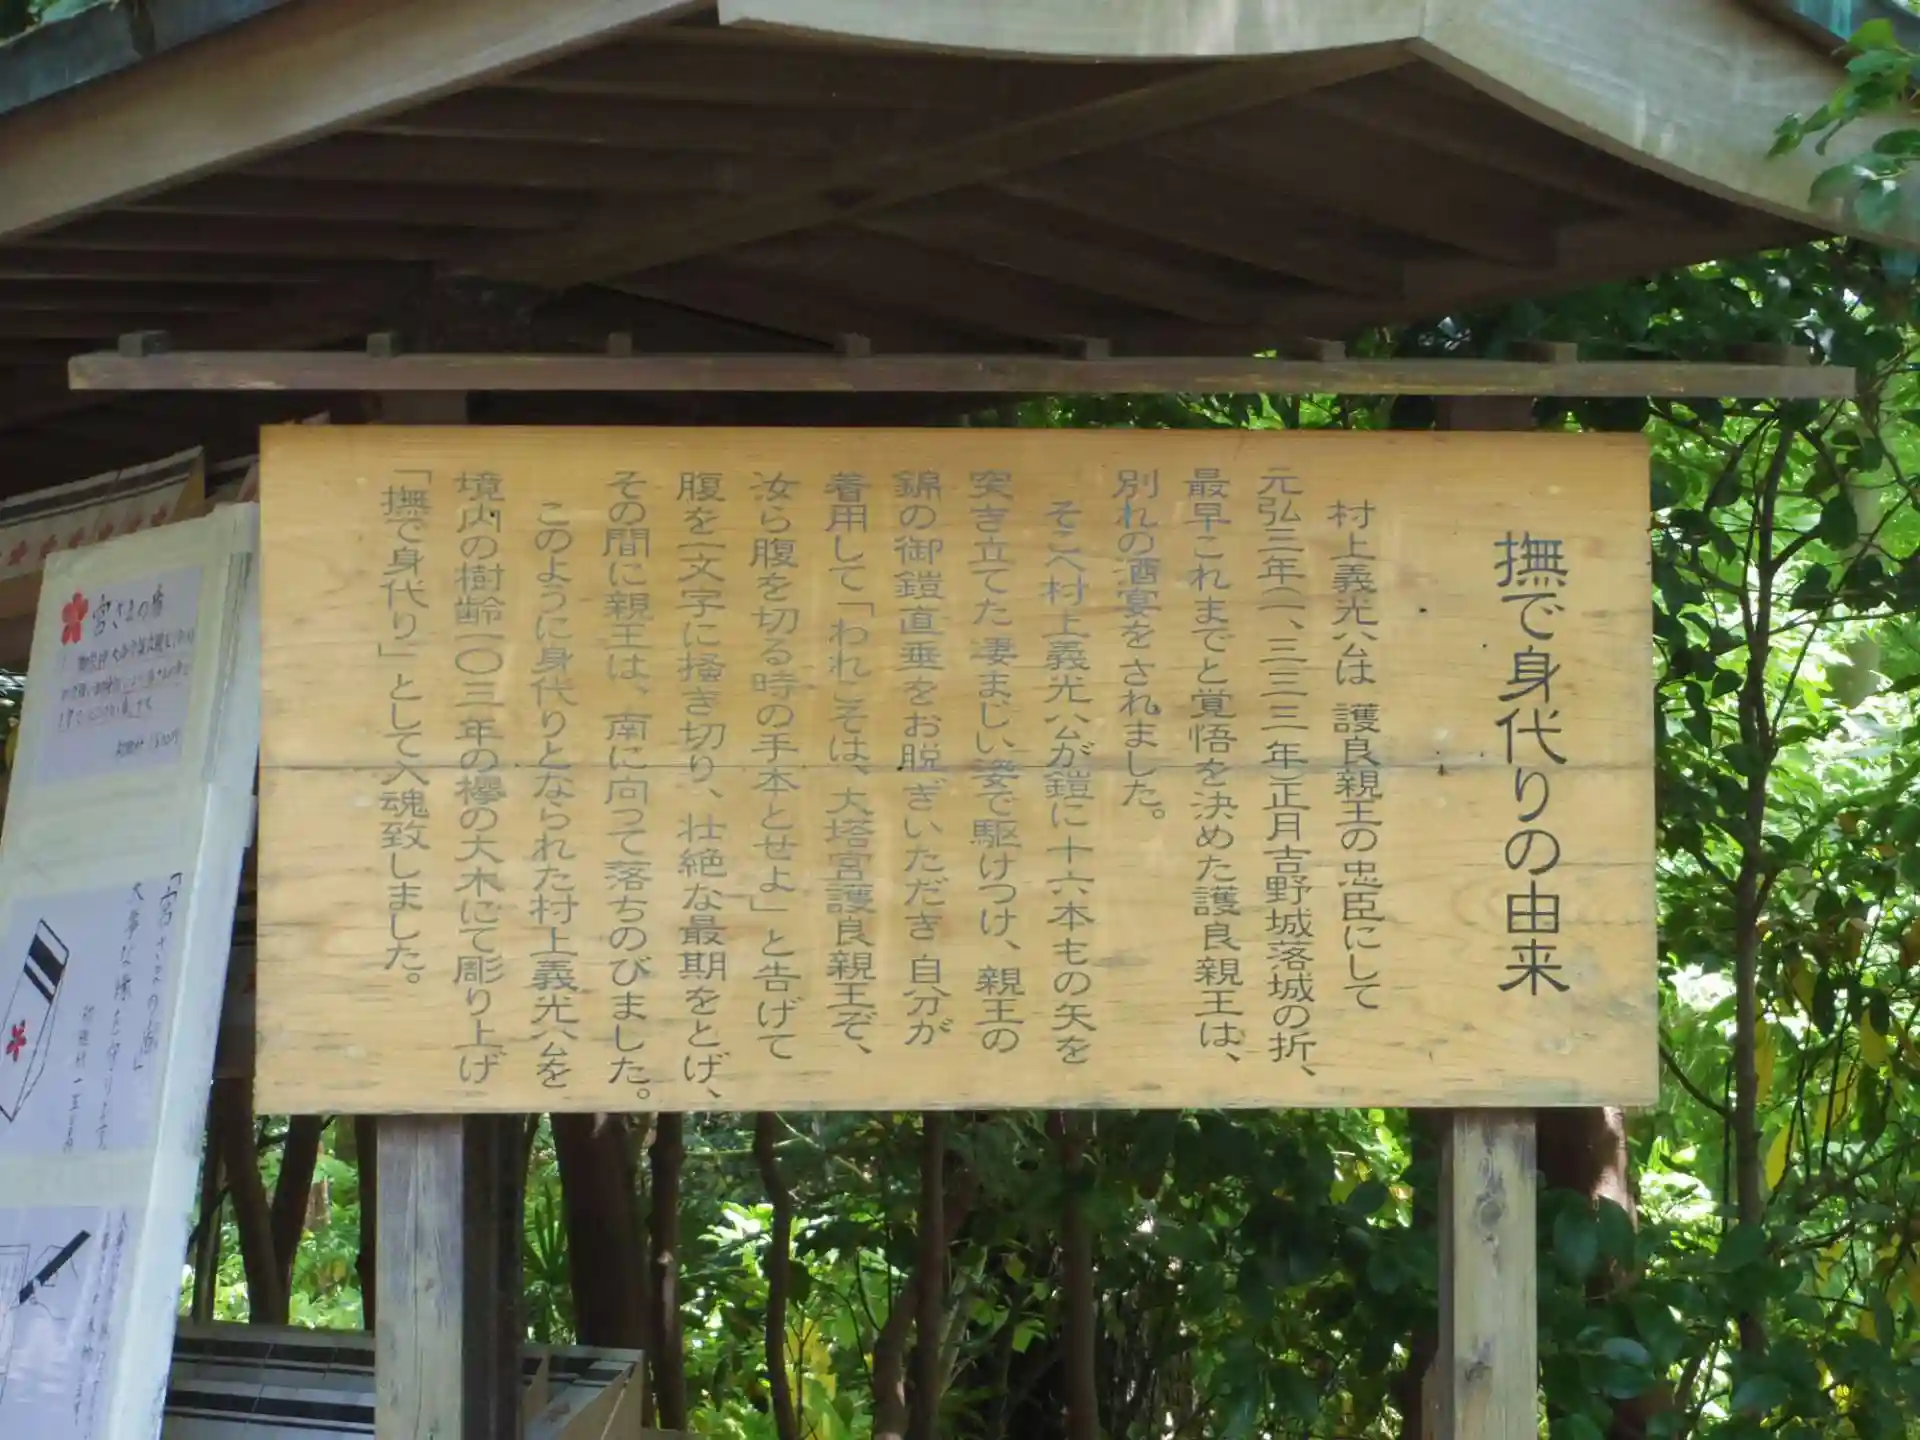 撫で身代りの由来
村上義光公は 護良親王の忠臣にして
元弘三年(一、三三三年)正月吉野城落城の折、
最早これまでと覚悟を決めた護良親王は、
別れの酒宴をされました。
そこへ村上義光公が鎧に十六本もの矢を
突き立てた凄まじい姿で駆けつけ、親王の
錦の御鎧直垂をお脱ぎいただき自分が
着用して「われこそは、大塔宮護良親王ぞ、
汝ら腹を切る時の手本とせよ」と告げて
腹を一文字に掻き切り、壮絶な最期をとげ、
その間に親王は、南に向って落ちのびました。
このように身代りとなられた村上義光公を
境内の樹齢一〇三年の欅の大木にて彫り上げ
「撫で身代り」として入魂致しました。
宮さまの盾
「宮さまの盾」
大事な縁を守ります